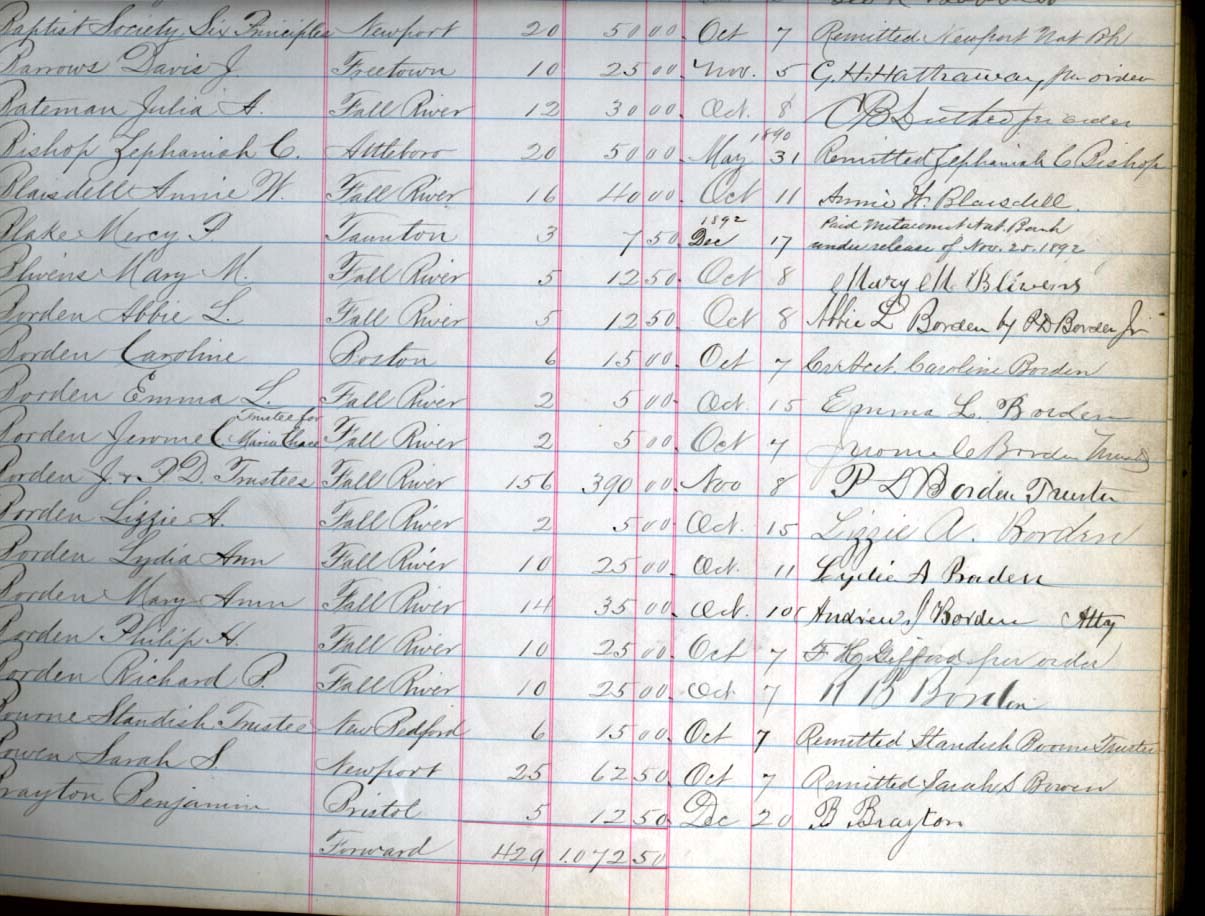 Baptist Society Six Principles Newport 20 50 00 Oct 7 Remitted Newport Nat Bk
Barrows Davis J. Freetown 10 25 00 Nov. 5 G. H. Hathaway per order
Bateman Julia A. Fall River 12 30 00 Oct. 8 per order
Bishop Zephaniah C. Attleboro 20 50 00 May 1890 31 Remitted Zephaniah C Bishop
Blaisdell Annie W. Fall River 16 40 00 Oct 11 Annie W. Blaisdell
Blake Mercy P Taunton 3 7 50 1892 Dec 17 Paid Metacomet Nat. Bank
under release of Nov. 25. 1892
Blivens Mary M. Fall River 5 12 50 Oct 8 Mary M. Blivens
Borden Abbie L. Fall River 5 12 50 Oct 8 Abbie L Borden by P D Borden Jr
Borden Caroline Boston 6 15 00 Oct 7 Cr Acct Caroline Borden
Borden Emma L. Fall River 2 5 00 Oct. 15 Emma L. Borden
Borden Jerome (Trustee for Maria Chace Fall River 2 5 00 Oct 7 Jerome C Borden Trustee
Borden J. & P. D. Trustees Fall River 156 390 00 Nov 8 P D Borden Trustee
Borden Lizzie A. Fall River 2 5 00 Oct. 15 Lizzie A. Borden
Borden Lydia Ann Fall River 10 25 00 Oct. 11 Lydia A Borden
Borden Mary Ann Fall River 14 35 00 Oct. 10 Andrew J Borden Atty
Borden Philip H. Fall River 10 25 00 Oct 7 F H Gifford per order
Borden Richard P. Fall River 10 25 00 Oct 7 Borden
Bourne Standish Trustee New Bedford 6 15 00 Oct 7 Remitted Standish Bourne Trustee
Bowen Sarah S. Newport 25 62 50 Oct 7 Remitted Sarah S Bowen
Brayton Benjamin Bristol 5 12 50 Dec 20 B Brayton
Forward 429 1.072 50